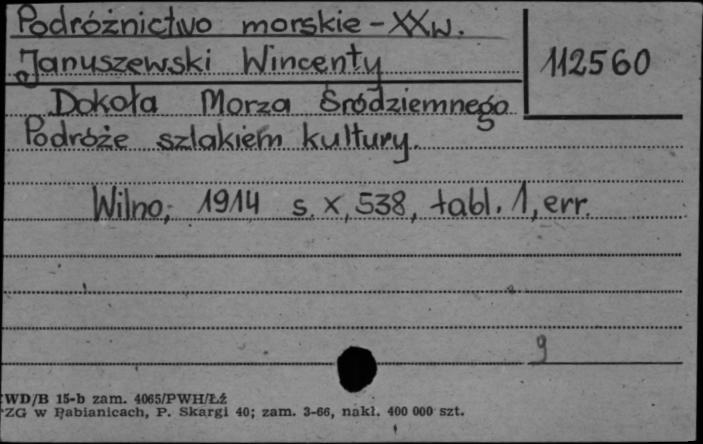 Podróżnictwo morskie - XXw.
Januszewski Wincenty
112560
Dokoła Morza Śródziemnego
Podróże szlakiem kultury.
Wilno; 1914 s. X, 538, tabl. 1, err.
9
WD/B 15-b zam. 4065/PWH/Łź
ZG w Pabianicach, P. Skargi 40; zam. 3-66, nakł. 400 000 szt.